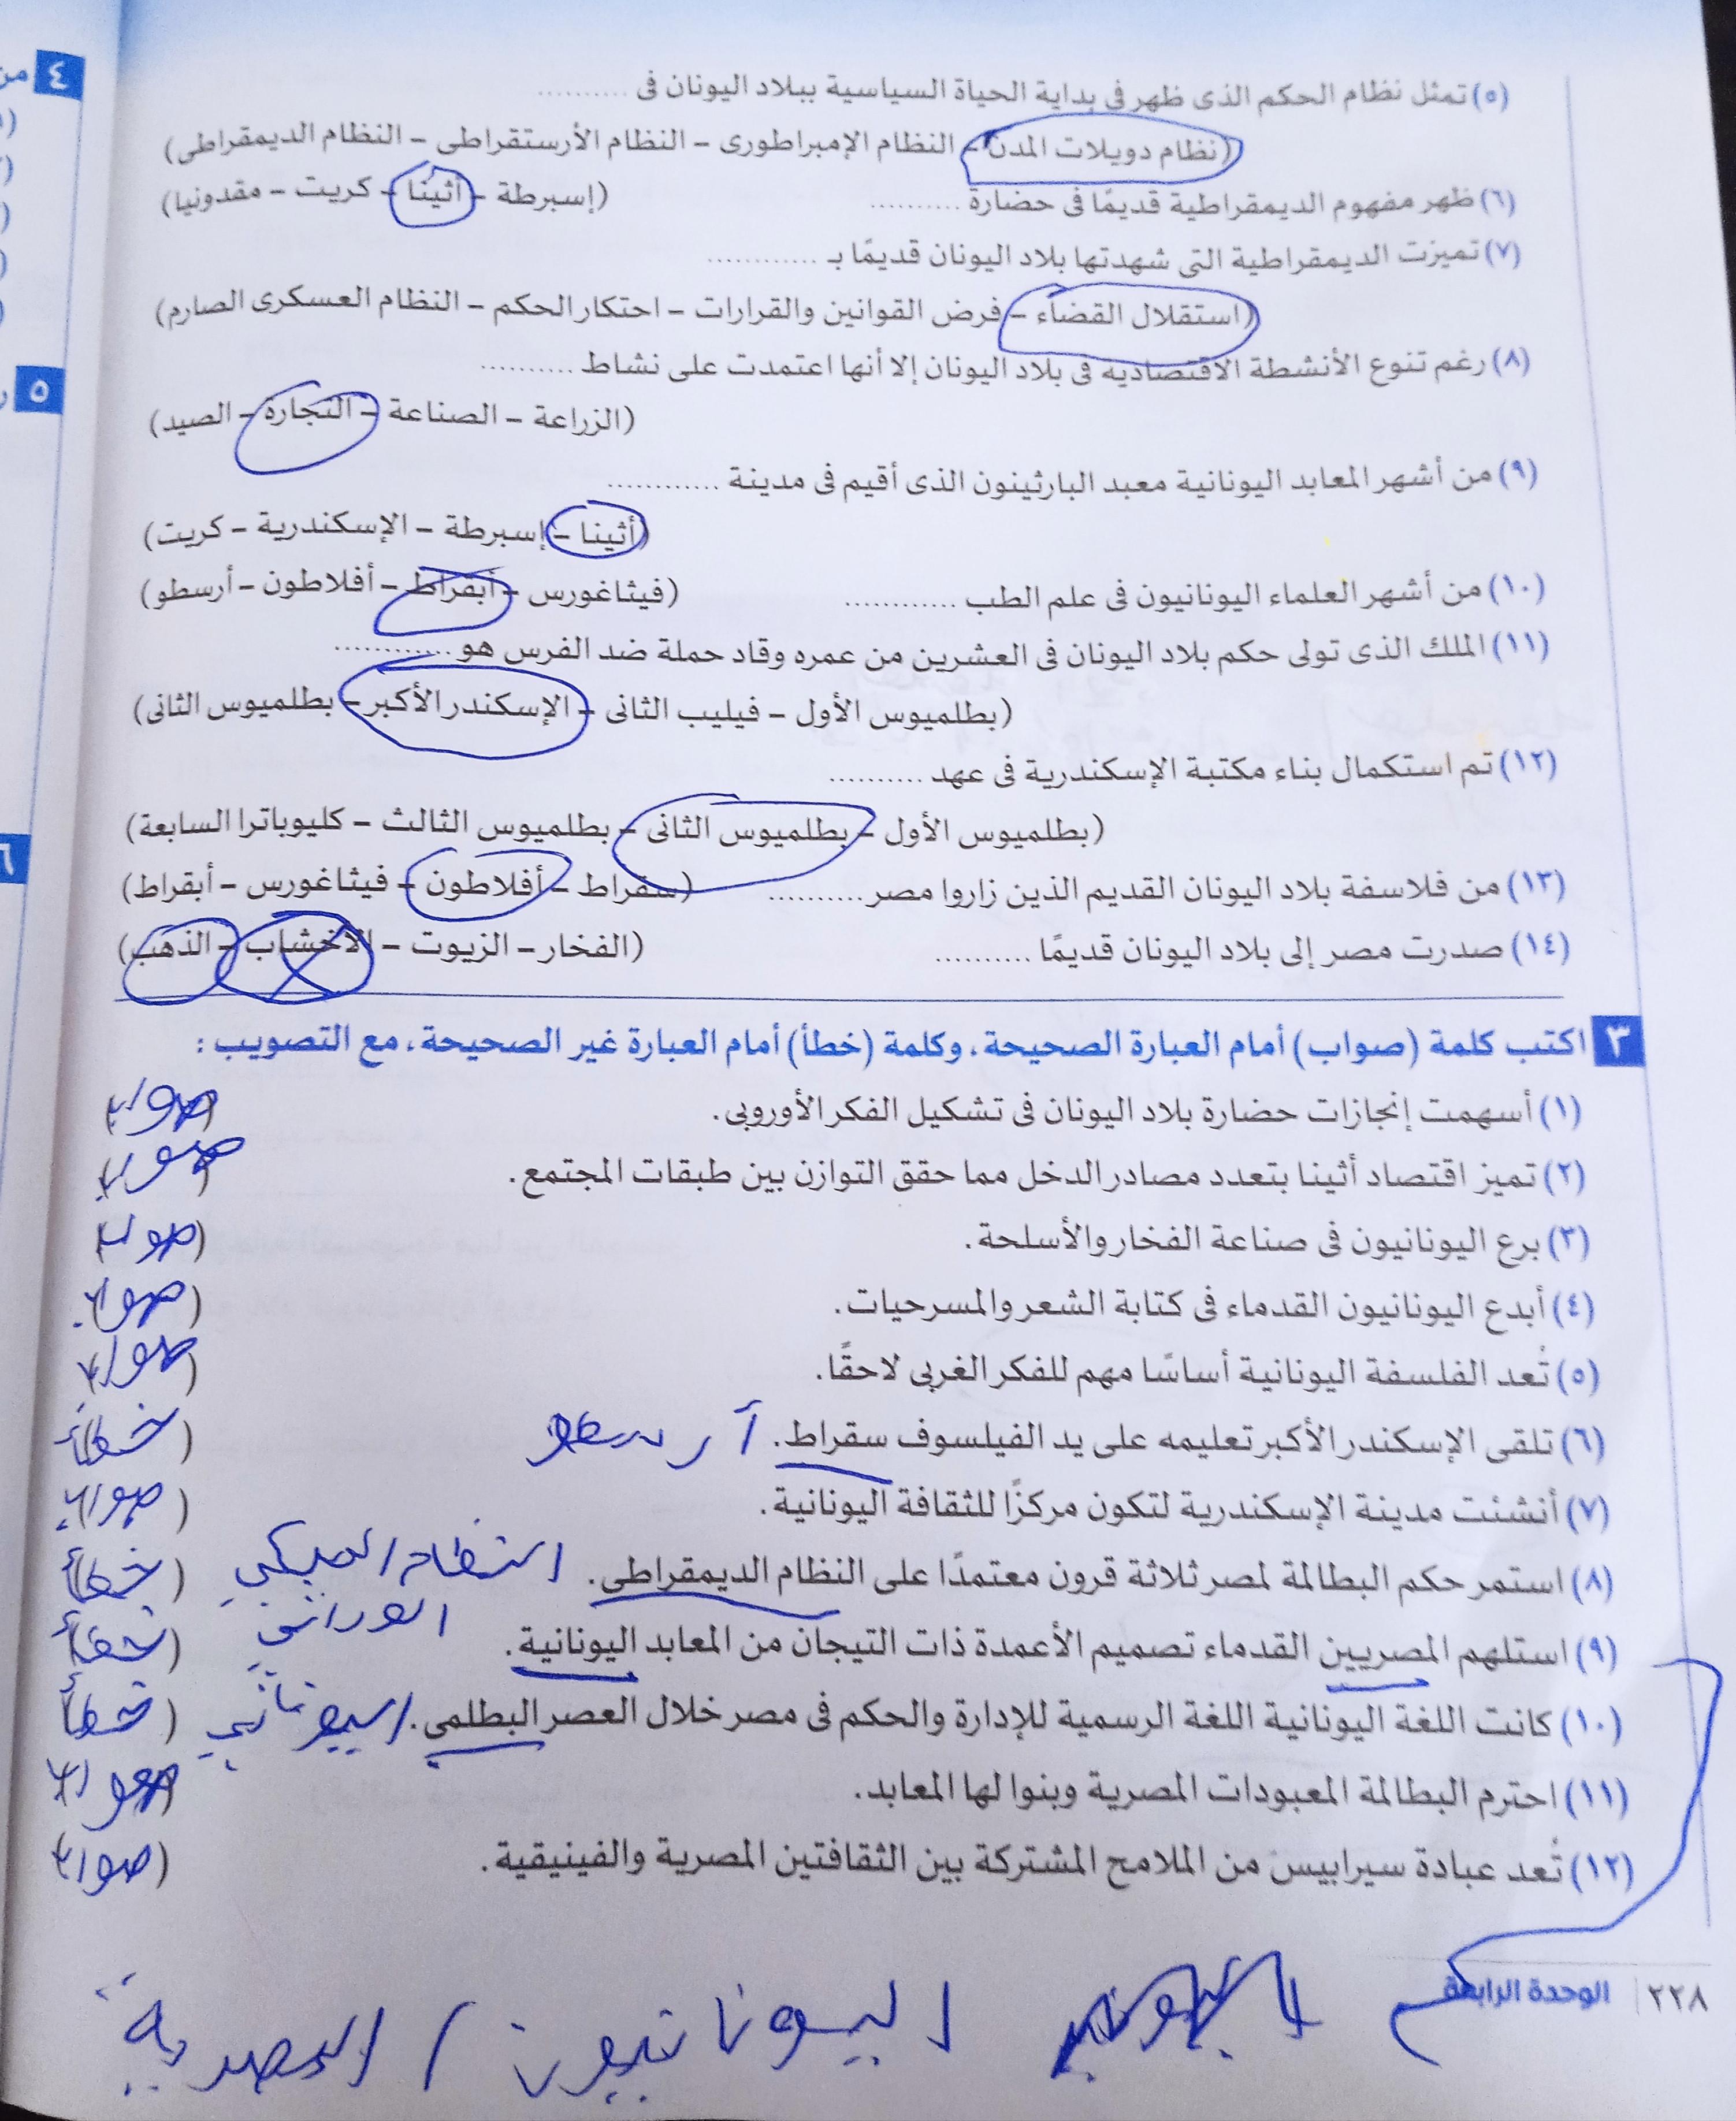 (٥) تمثل نظام الحكم الذى ظهر فى بداية الحياة السياسية ببلاد اليونان فى ..........
(نظام دويلات المدن – النظام الإمبراطورى – النظام الأرستقراطى – النظام الديمقراطى)
(٦) ظهر مفهوم الديمقراطية قديمًا فى حضارة .......... (إسبرطة – أثينا – كريت – مقدونيا)
(٧) تميزت الديمقراطية التى شهدتها بلاد اليونان قديمًا بـ ............
(استقلال القضاء – فرض القوانين والقرارات – احتكار الحكم – النظام العسكرى الصارم)
(٨) رغم تنوع الأنشطة الاقتصادية فى بلاد اليونان إلا أنها اعتمدت على نشاط ..........
(الزراعة – الصناعة – التجارة – الصيد)
(٩) من أشهر المعابد اليونانية معبد البارثينون الذى أقيم فى مدينة ............
(أثينا – إسبرطة – الإسكندرية – كريت)
(١٠) من أشهر العلماء اليونانيون فى علم الطب ............ (فيثاغورس – أبقراط – أفلاطون – أرسطو)
(١١) الملك الذى تولى حكم بلاد اليونان فى العشرين من عمره وقاد حملة ضد الفرس هو ............
(بطلميوس الأول – فيليب الثانى – الإسكندر الأكبر – بطلميوس الثانى)
(١٢) تم استكمال بناء مكتبة الإسكندرية فى عهد ..........
(بطلميوس الأول – بطلميوس الثانى – بطلميوس الثالث – كليوباترا السابعة)
(١٣) من فلاسفة بلاد اليونان القديم الذين زاروا مصر .......... (سقراط – أفلاطون – فيثاغورس – أبقراط)
(١٤) صدرت مصر إلى بلاد اليونان قديمًا .......... (الفخار – الزيوت – الأخشاب – الذهب)
٣ اكتب كلمة (صواب) أمام العبارة الصحيحة، وكلمة (خطأ) أمام العبارة غير الصحيحة، مع التصويب :
(١) أسهمت إنجازات حضارة بلاد اليونان فى تشكيل الفكر الأوروبى. (صواب)
(٢) تميز اقتصاد أثينا بتعدد مصادر الدخل مما حقق التوازن بين طبقات المجتمع. (صواب)
(٣) برع اليونانيون فى صناعة الفخار والأسلحة. (صواب)
(٤) أبدع اليونانيون القدماء فى كتابة الشعر والمسرحيات. (صواب)
(٥) تُعد الفلسفة اليونانية أساسًا مهم للفكر الغربى لاحقًا. (صواب)
(٦) تلقى الإسكندر الأكبر تعليمه على يد الفيلسوف سقراط. أرسطو (خطأ
(٧) أنشئت مدينة الإسكندرية لتكون مركزًا للثقافة اليونانية. (صواب)
(٨) استمر حكم البطالمة لمصر ثلاثة قرون معتمدًا على النظام الديمقراطى. النظام الملكي (خطأ
الوراثي
(٩) استلهم المصريين القدماء تصميم الأعمدة ذات التيجان من المعابد اليونانية. (خطأ
(١٠) كانت اللغة اليونانية اللغة الرسمية للإدارة والحكم فى مصر خلال العصر البطلمى. اليوناني (خطأ
(١١) احترم البطالمة المعبودات المصرية وبنوا لها المعابد. (صواب)
(١٢) تُعد عبادة سيرابيس من الملامح المشتركة بين الثقافتين المصرية والفينيقية. (صواب)
٢٢٨ | الوحدة الرابعة
اليونانيون / المصرية
٤ من
٥
٦